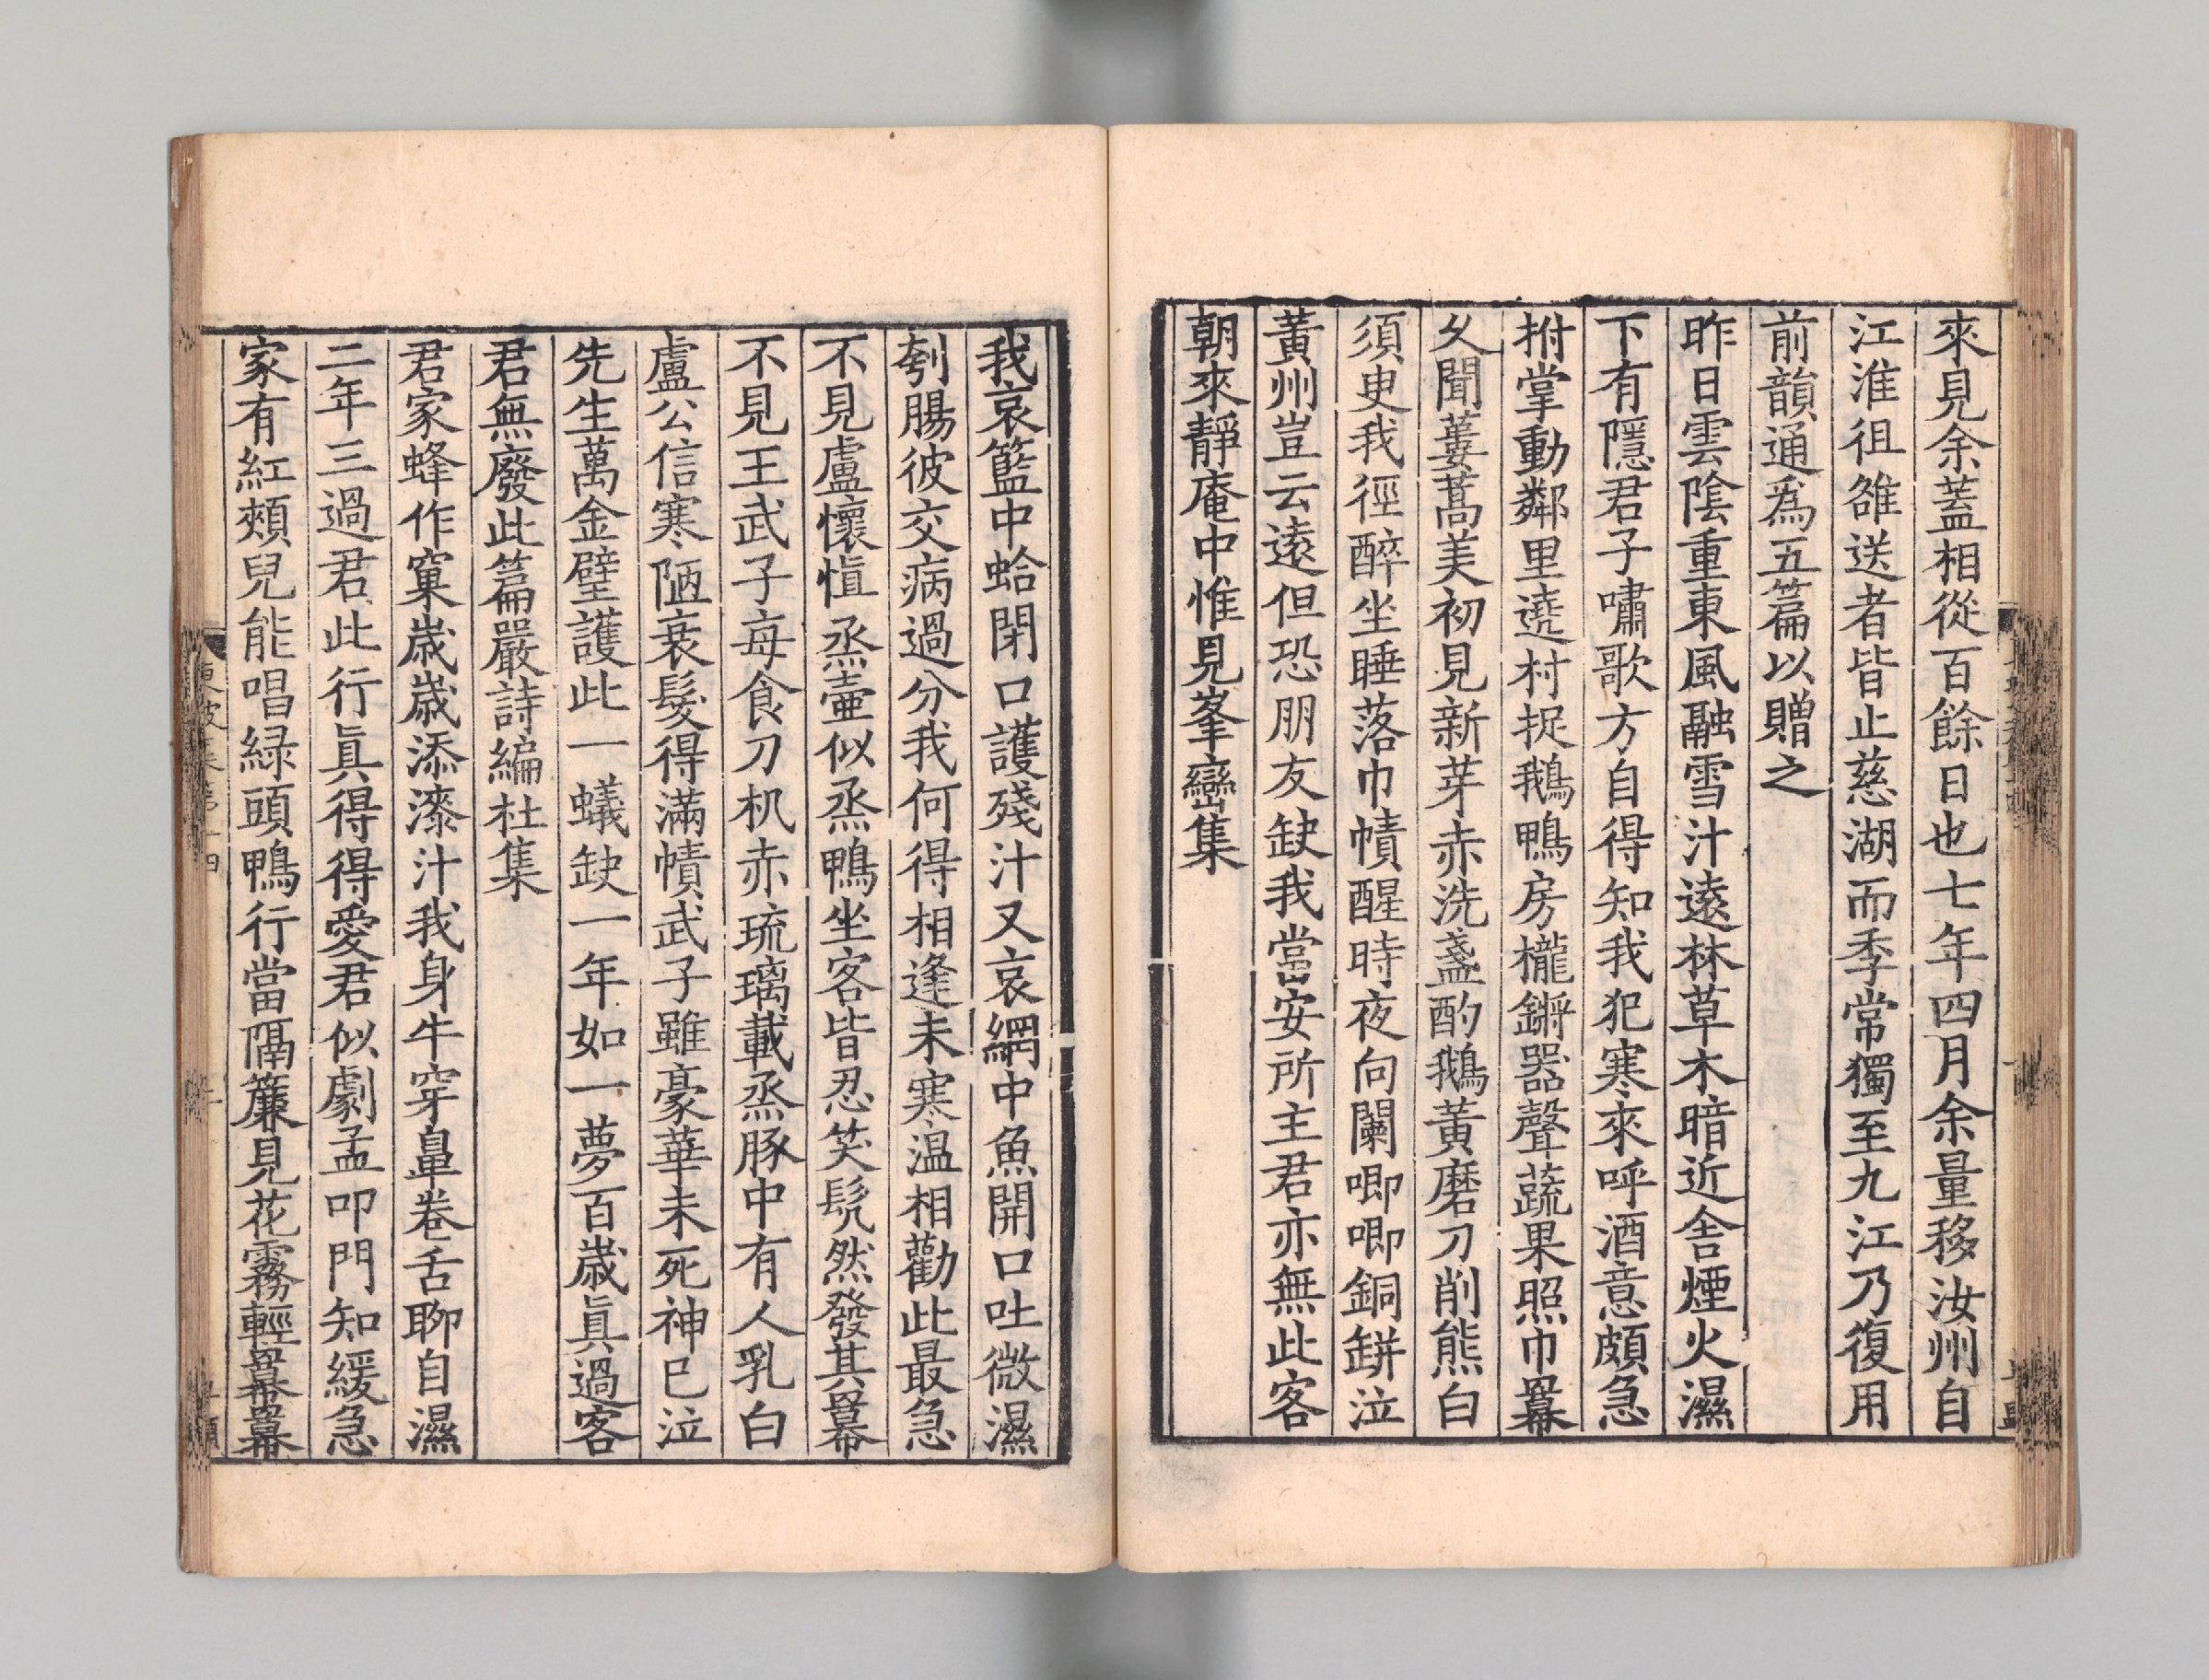 來見余蓋相從百餘日也七年四月余量移汝州自
江淮徂雒送者皆止慈湖而季常獨至九江乃復用
前韻通爲五篇以贈之
昨日雲陰重東風融雪汁遠林草木暗近舍煙火濕
下有隱君子嘯歌方自得知我犯寒來呼酒意頗急
拊掌動鄰里遶村捉鵝鴨房櫳鏘器聲蔬果照巾羃
久聞蔞蒿美初見新芽赤洗盞酌鵝黃磨刀削熊白
須臾我徑醉坐睡落巾幘醒時夜向闌唧唧銅缾泣
黃州豈云遠但恐朋友缺我當安所主君亦無此客
朝來靜庵中惟見峯巒集
我哀籃中蛤閉口護殘汁又哀網中魚開口吐微濕
刳腸彼交病過分我何得相逢未寒温相勸此最急
不見盧懷愼烝壷似烝鴨坐客皆忍笑髡然發其羃
不見王武子每食刀机赤琉璃載烝豚中有人乳白
盧公信寒陋衰髮得滿幘武子雖豪華未死神已泣
先生萬金璧護此一蟻缺一年如一夢百歳眞過客
君無廢此篇嚴詩編杜集
君家蜂作窠歳歳添漆汁我身牛穿鼻卷舌聊自濕
二年三過君此行眞得得愛君似劇孟叩門知緩急
家有紅頰兒能唱緑頭鴨行當隔簾見花霧輕羃羃
東坡集第十四